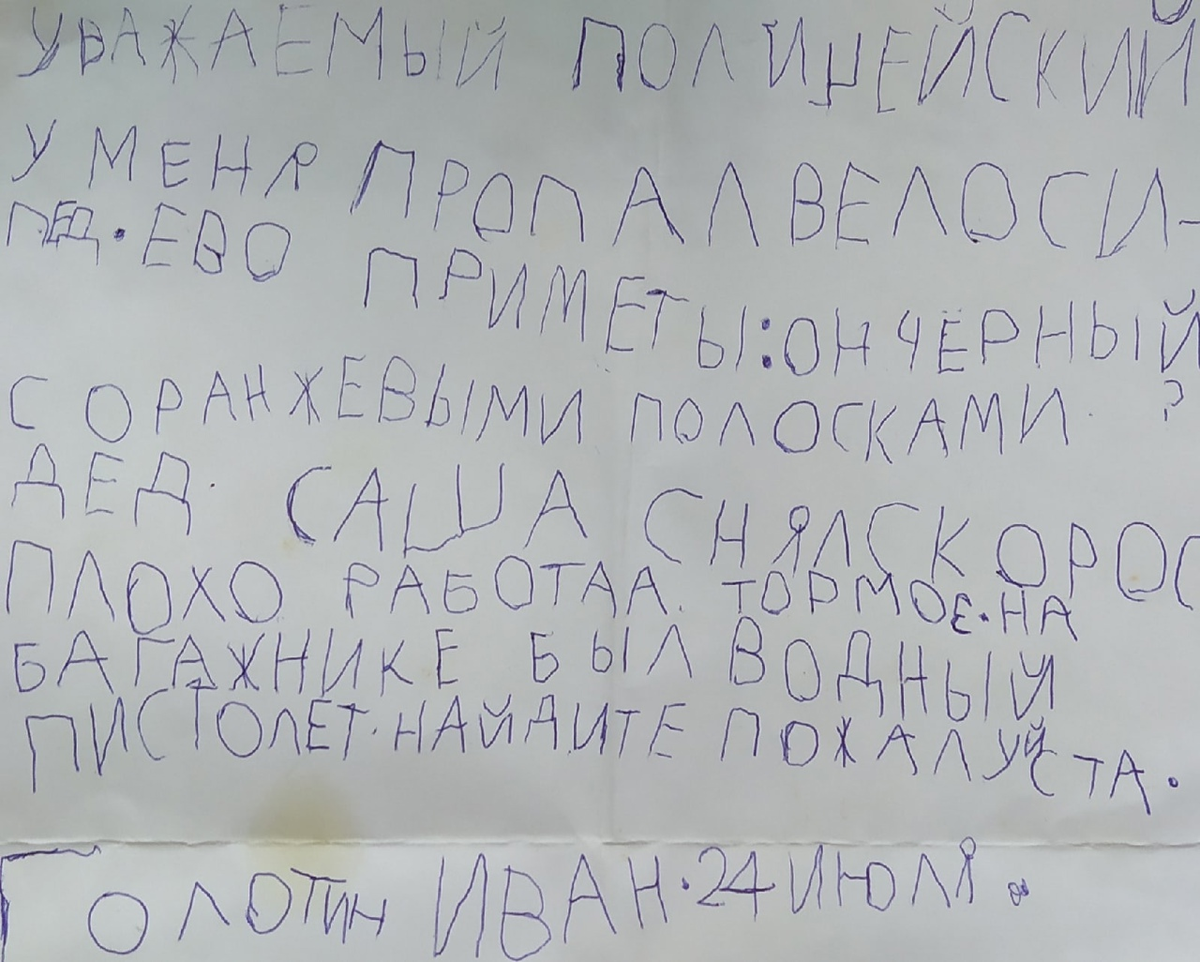 УВАЖАЕМЫЙ ПОЛИЦЕЙСКИЙ
У МЕНЯ ПРОПАЛ ВЕЛОСИ-
ПЕД. ЕВО ПРИМЕТЫ: ОН ЧЁРНЫЙ
С ОРАНЖЕВЫМИ ПОЛОСКАМИ. ?
ДЕД. САША СНЯЛ СКОРОС
ПЛОХО РАБОТАА. ТОРМОЕ. НА
БАГАЖНИКЕ БЫЛ ВОДНЫЙ
ПИСТОЛЕТ. НАЙДИТЕ ПОЖАЛУЙСТА.
ГОЛОТИН ИВАН. 24 ИЮЛЯ.